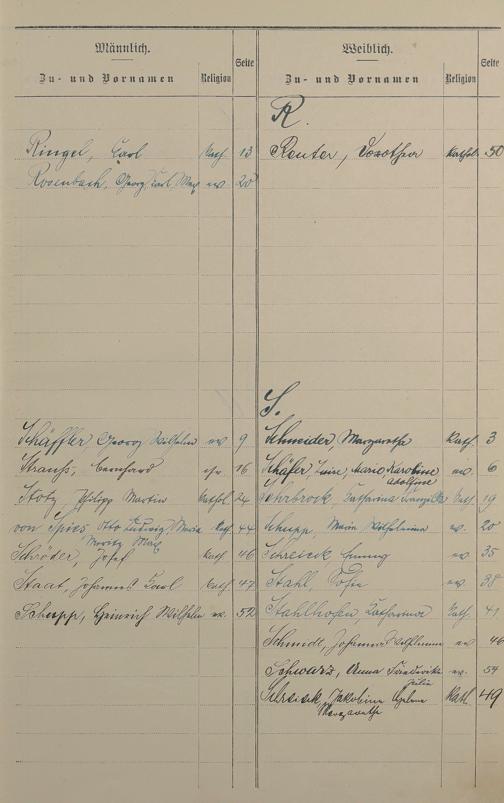 Männlich.
Zu- und Vornamen Religion Seite
Weiblich.
Zu- und Vornamen Religion Seite
R.
Ringel, Carl Kath. 13
Reuter, Dorothea Kathol. 50
Rosenbach, Georg Carl Max ev. 20
S.
Schäffler, Georg Wilhelm ev. 9
Schneider, Margarethe Kath. 3
Strauss, Bernhard 16
Schäfer, Luise, Marie Karoline ev. 6
Adolfine
Stotz, Philipp Martin Kathol. 24
Sehrbrock, Catharina Kath. 19
von Spies Otto Ludwig, Maria Kath. 44
Moritz Max
Schupp, Maria Wilhelmina ev. 20
Schröder, Josef Kath. 46
Emmy ev. 35
Staat, Johannes Karl Kath. 47
Stahl, Sofie ev. 38
Schupp, Heinrich Wilhelm ev. 52
Stahlhofen, Katharina Kath. 41
Schmidt, Johanna Wilhelmine ev. 46
Schwarz, Anna Friedericke ev. 54
Julie
Jakobine Helene Kath. 49
Margarethe